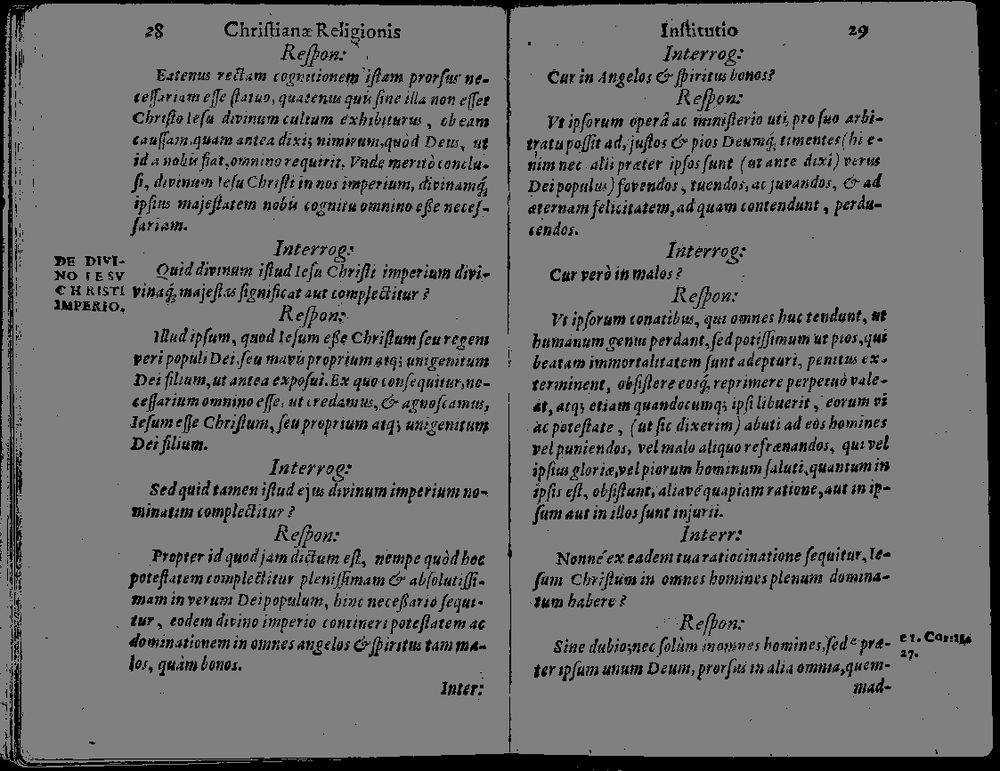 28 Christianæ Religionis
Respon:
Eatenus rectam cognitionem istam prorsus ne-
cessariam esse statuo, quatenus quis sine illa non esset
Christo Iesu divinum cultum exhibiturus, ob eam
caussam, quam antea dixi; nimirum, quòd Deus, ut
id a nobis fiat, omnino requirit. Unde meritò conclu-
si, divinum Iesu Christi in nos imperium, divinamq́;
ipsius majestatem nobis cognitu omnino eße neces-
sariam.
Interrog:
DE DIVI-
NO IESV
CHRISTI
IMPERIO.
Quid divinum istud Iesu Christi imperium divi-
vinaq́; majestas significat aut complectitur?
Respon:
Illud ipsum, quod Iesum eße Christum seu regem
veri populi Dei, seu mavis proprium atq; unigenitum
Dei filium, ut antea exposui. Ex quo consequitur, ne-
cessarium omnino esse, ut credamus, & agnoscamus,
Iesum esse Christum, seu proprium atq; unigenitum
Dei filium.
Interrog:
Sed quid tamen istud ejus divinum imperium no-
minatim complectitur?
Respon:
Propter id quod jam dictum est, nempe quòd hoc
potestatem complectitur plenissimam & absolutissi-
mam in verum Dei populum, hinc neceßario sequi-
tur, eodem divino imperio contineri potestatem ac
dominationem in omnes angelos & spiritus tam ma-
los, quàm bonos.
Inter:
Institutio 29
Interrog:
Cur in Angelos & spiritus bonos?
Respon:
Vt ipsorum operâ ac ministerio uti, pro suo arbi-
tratu possit ad, justos & pios Deumq́; timentes (hi e-
nim nec alii præter ipsos sunt (ut ante dixi) verus
Dei populus) fovendos, tuendos, ac juvandos, & ad
æternam felicitatem, ad quam contendunt, perdu-
cendos.
Interrog:
Cur verò in malos?
Respon:
Vt ipsorum conatibus, qui omnes huc tendunt, ut
humanum genus perdant, sed potissimum ut pios, qui
beatam immortalitatem sunt adepturi, penitus ex-
terminent, obsistere eosq́; reprimere perpetuò vale-
at, atq; etiam quandocumq; ipsi libuerit, eorum vi
ac potestate, (ut sic dixerim) abuti ad eos homines
vel puniendos, vel malo aliquo refrænandos, qui vel
ipsius gloriæ, vel piorum hominum saluti, quantum in
ipsis est, obsistunt, aliavé quapiam ratione, aut in ip-
sum aut in illos sunt injurii.
Interr:
Nonné ex eadem tua ratiocinatione sequitur, Ie-
sum Christum in omnes homines plenum domina-
tum habere?
Respon:
Sine dubio; nec solùm in omnes homines, sed e præ-
ter ipsum unum Deum, prorsus in alia omnia, quem-
27.
mad-